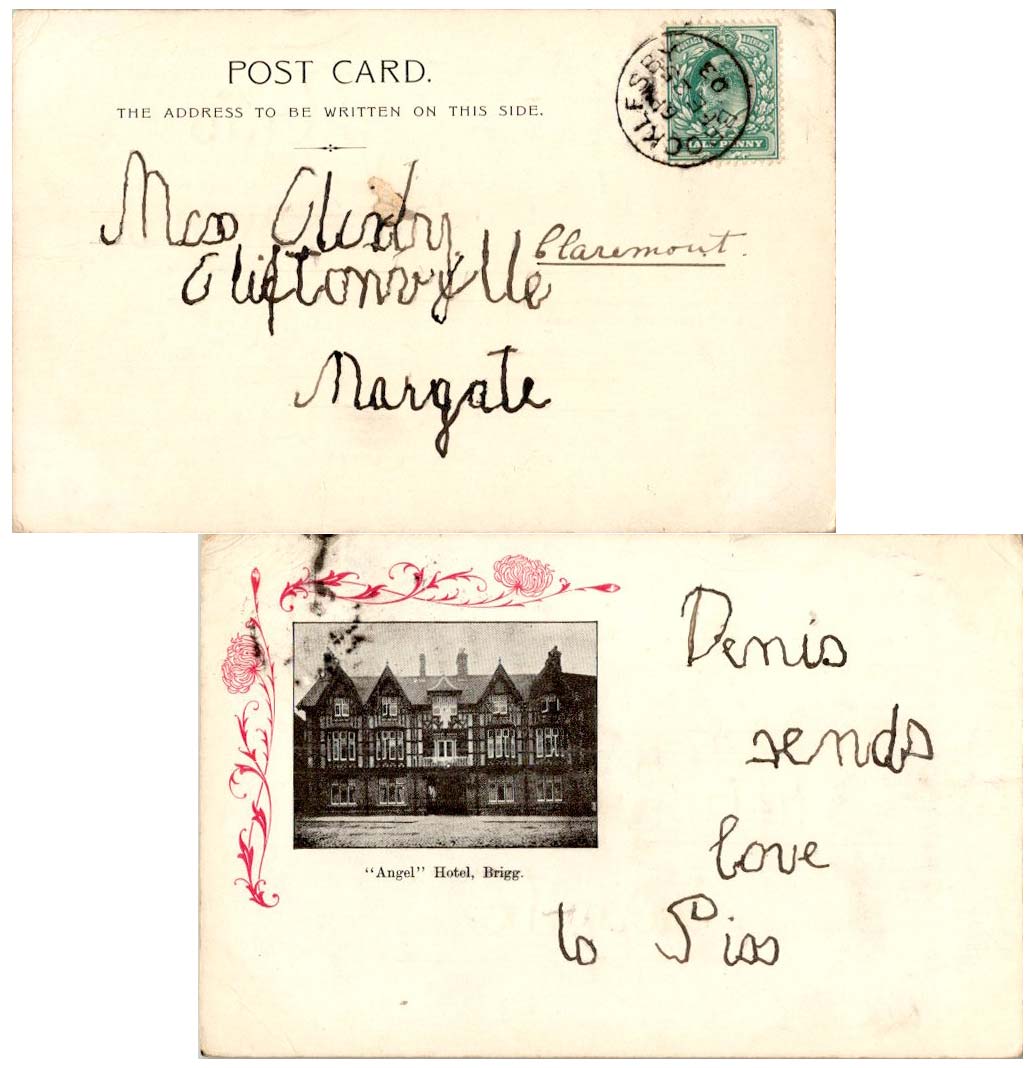 POST CARD.
THE ADDRESS TO BE WRITTEN ON THIS SIDE.
OCKLESBY
03
HALF PENNY
Miss
Claremont.
Cliftonville
Margate
"Angel" Hotel, Brigg.
Denis
sends
love
to Piss